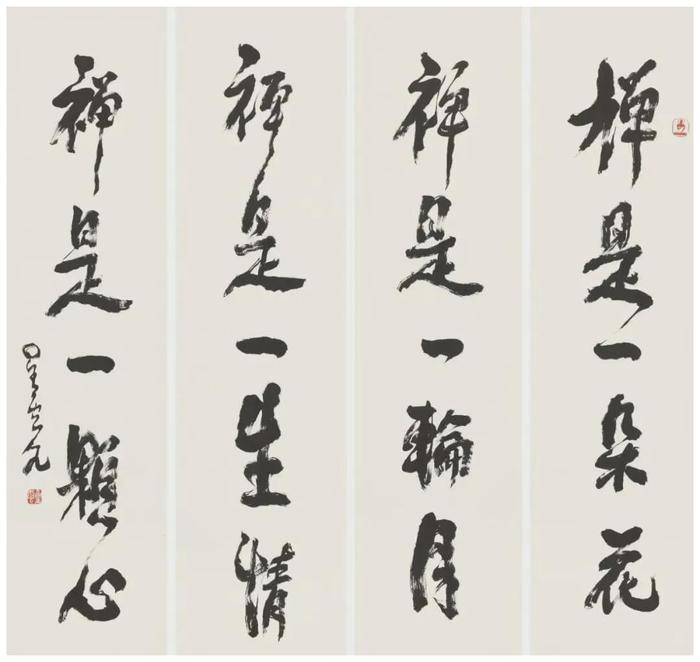 禅是一朵花
禅是一輪月
禅是一生情
禅是一顆心